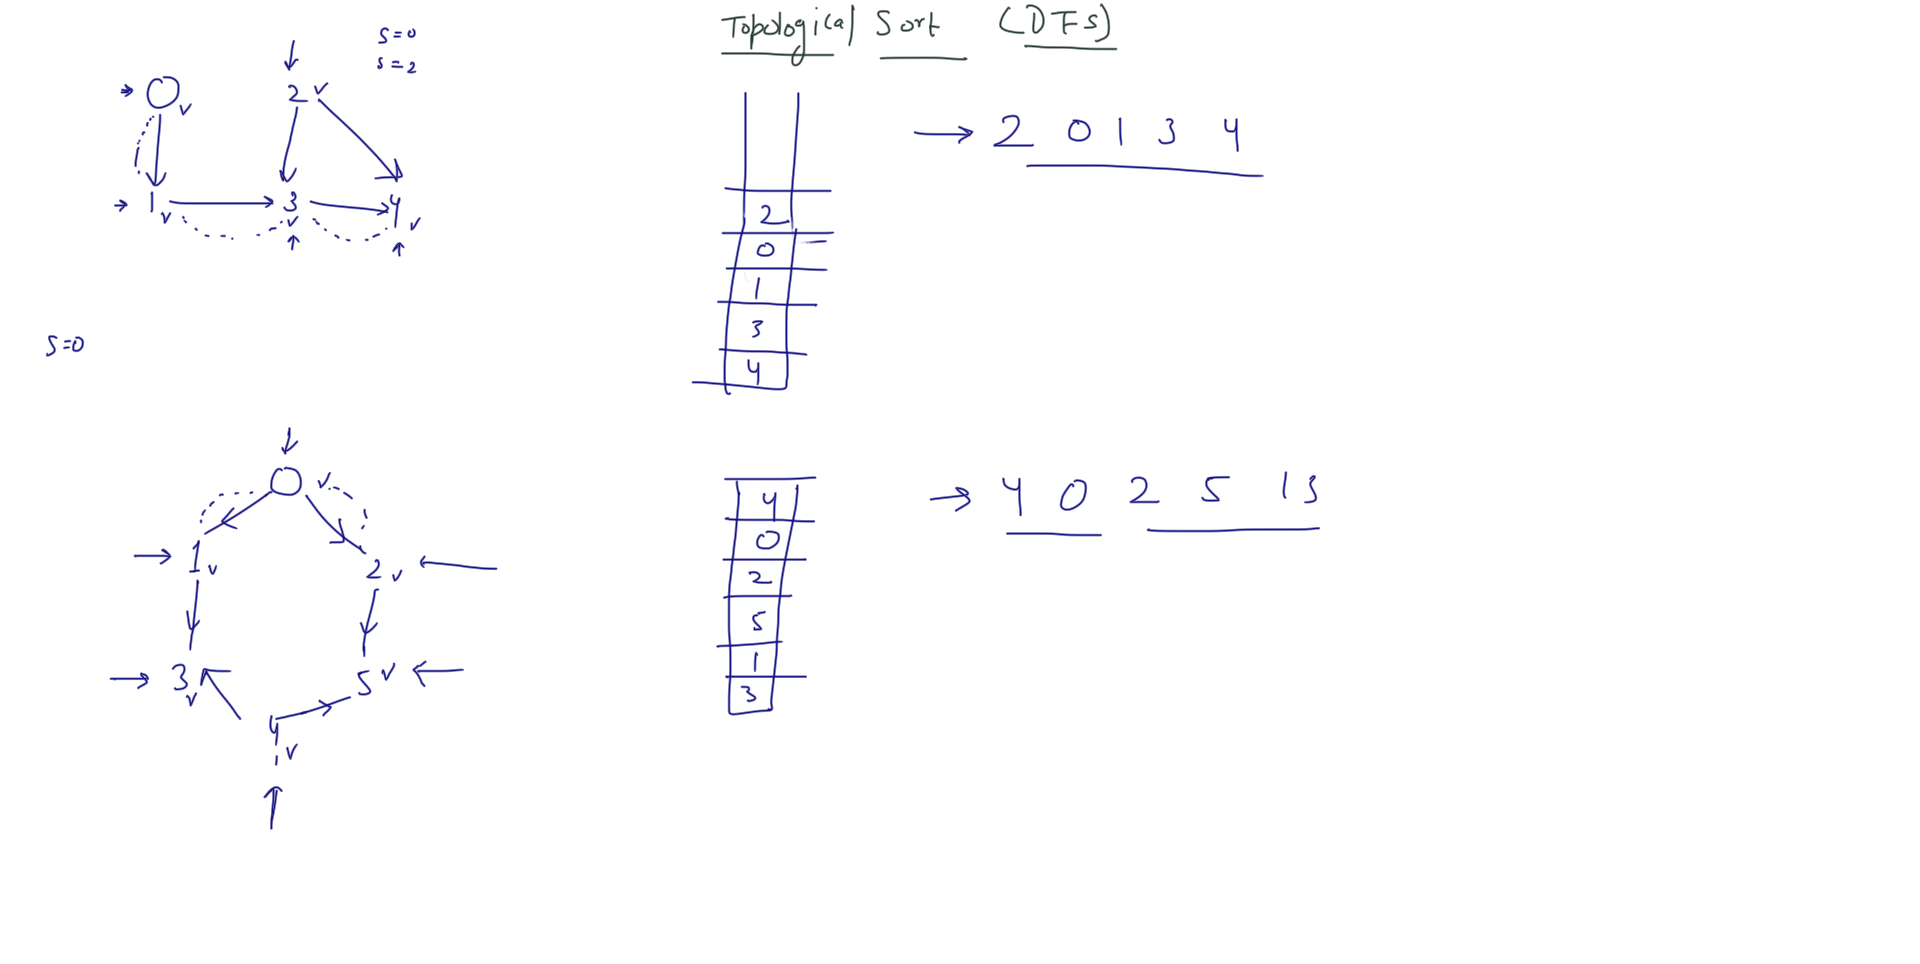 Topological Sort (DFS)
S=0
S=2
0 v 2 v
1 v 3 v 4 v
2
0
1
3
4
→ 2 0 1 3 4
S=0
0 v
1 v 2 v
3 v 5 v
4 v
4
0
2
5
1
3
→ 4 0 2 5 1 3